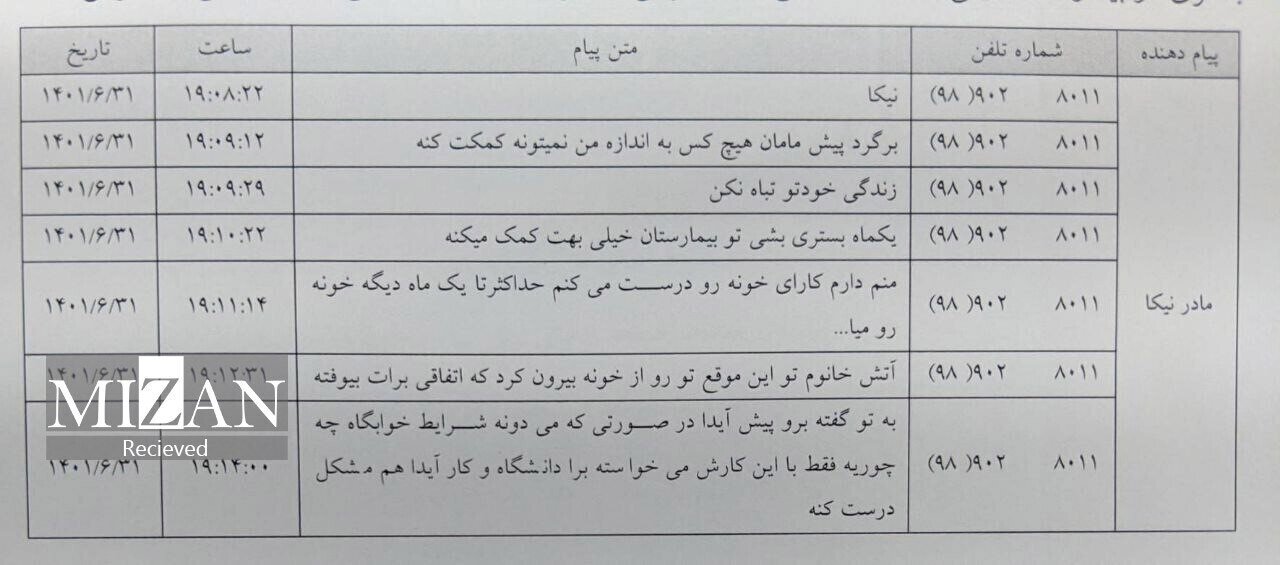 پیام دهنده شماره تلفن متن پیام ساعت تاریخ
مادر نیکا
۸۰۱۱ ۹۰۲( ۹۸) نیکا ۱۹:۰۸:۲۲ ۱۴۰۱/۶/۳۱
۸۰۱۱ ۹۰۲( ۹۸) برگرد پیش مامان هیچ کس به اندازه من نمیتونه کمکت کنه ۱۹:۰۹:۱۲ ۱۴۰۱/۶/۳۱
۸۰۱۱ ۹۰۲( ۹۸) زندگی خودتو تباه نکن ۱۹:۰۹:۲۹ ۱۴۰۱/۶/۳۱
۸۰۱۱ ۹۰۲( ۹۸) یکماه بستری بشی تو بیمارستان خیلی بهت کمک میکنه ۱۹:۱۰:۲۲ ۱۴۰۱/۶/۳۱
۸۰۱۱ ۹۰۲( ۹۸) منم دارم کارای خونه رو درست می کنم حداکثرتا یک ماه دیگه خونه
رو میا... ۱۹:۱۱:۱۴ ۱۴۰۱/۶/۳۱
۸۰۱۱ ۹۰۲( ۹۸) آتش خانوم تو این موقع تو رو از خونه بیرون کرد که اتفاقی برات بیوفته ۱۹:۱۲:۳۱ ۱۴۰۱/۶/۳۱
۸۰۱۱ ۹۰۲( ۹۸) به تو گفته برو پیش آیدا در صورتی که می دونه شرایط خوابگاه چه
چوریه فقط با این کارش می خواسته برا دانشگاه و کار آیدا هم مشکل
درست کنه ۱۹:۱۴:۰۰ ۱۴۰۱/۶/۳۱
MIZAN
Recieved